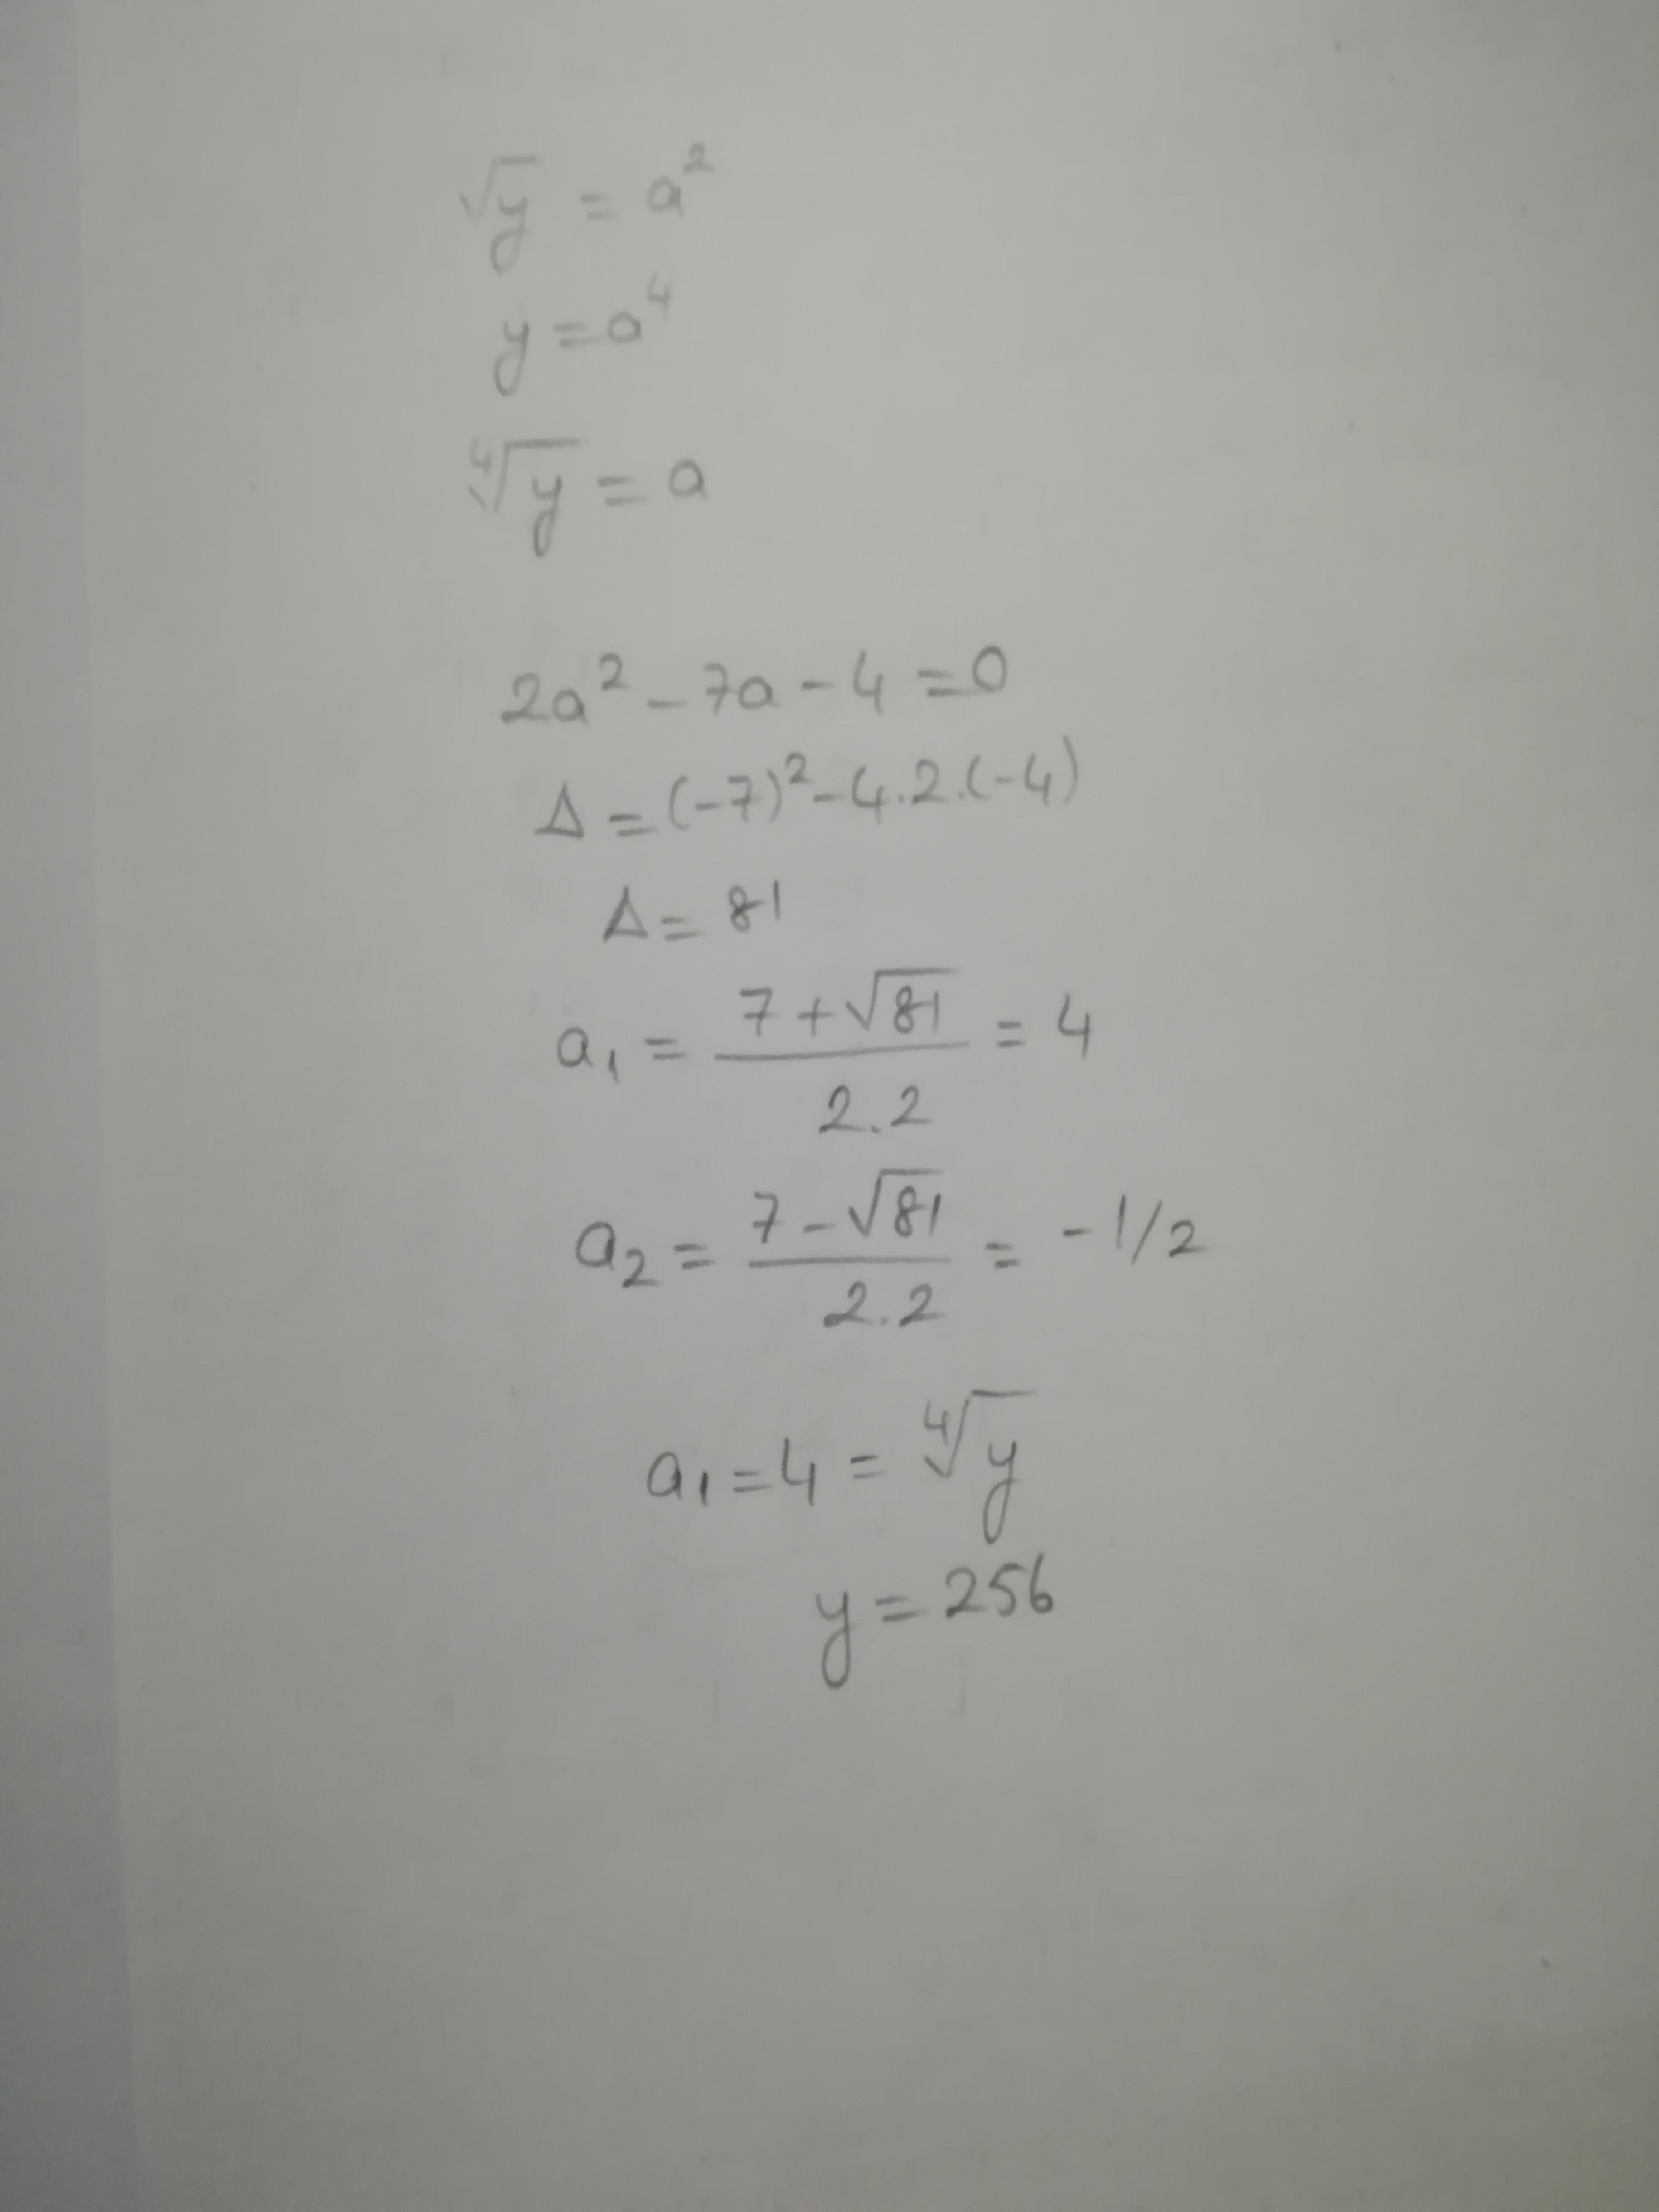 √y = a²
y = a⁴
⁴√y = a
2a² - 7a - 4 = 0
Δ = (-7)² - 4.2.(-4)
Δ = 81
a₁ = (7 + √81) / 2.2 = 4
a₂ = (7 - √81) / 2.2 = -1/2
a₁ = 4 = ⁴√y
y = 256